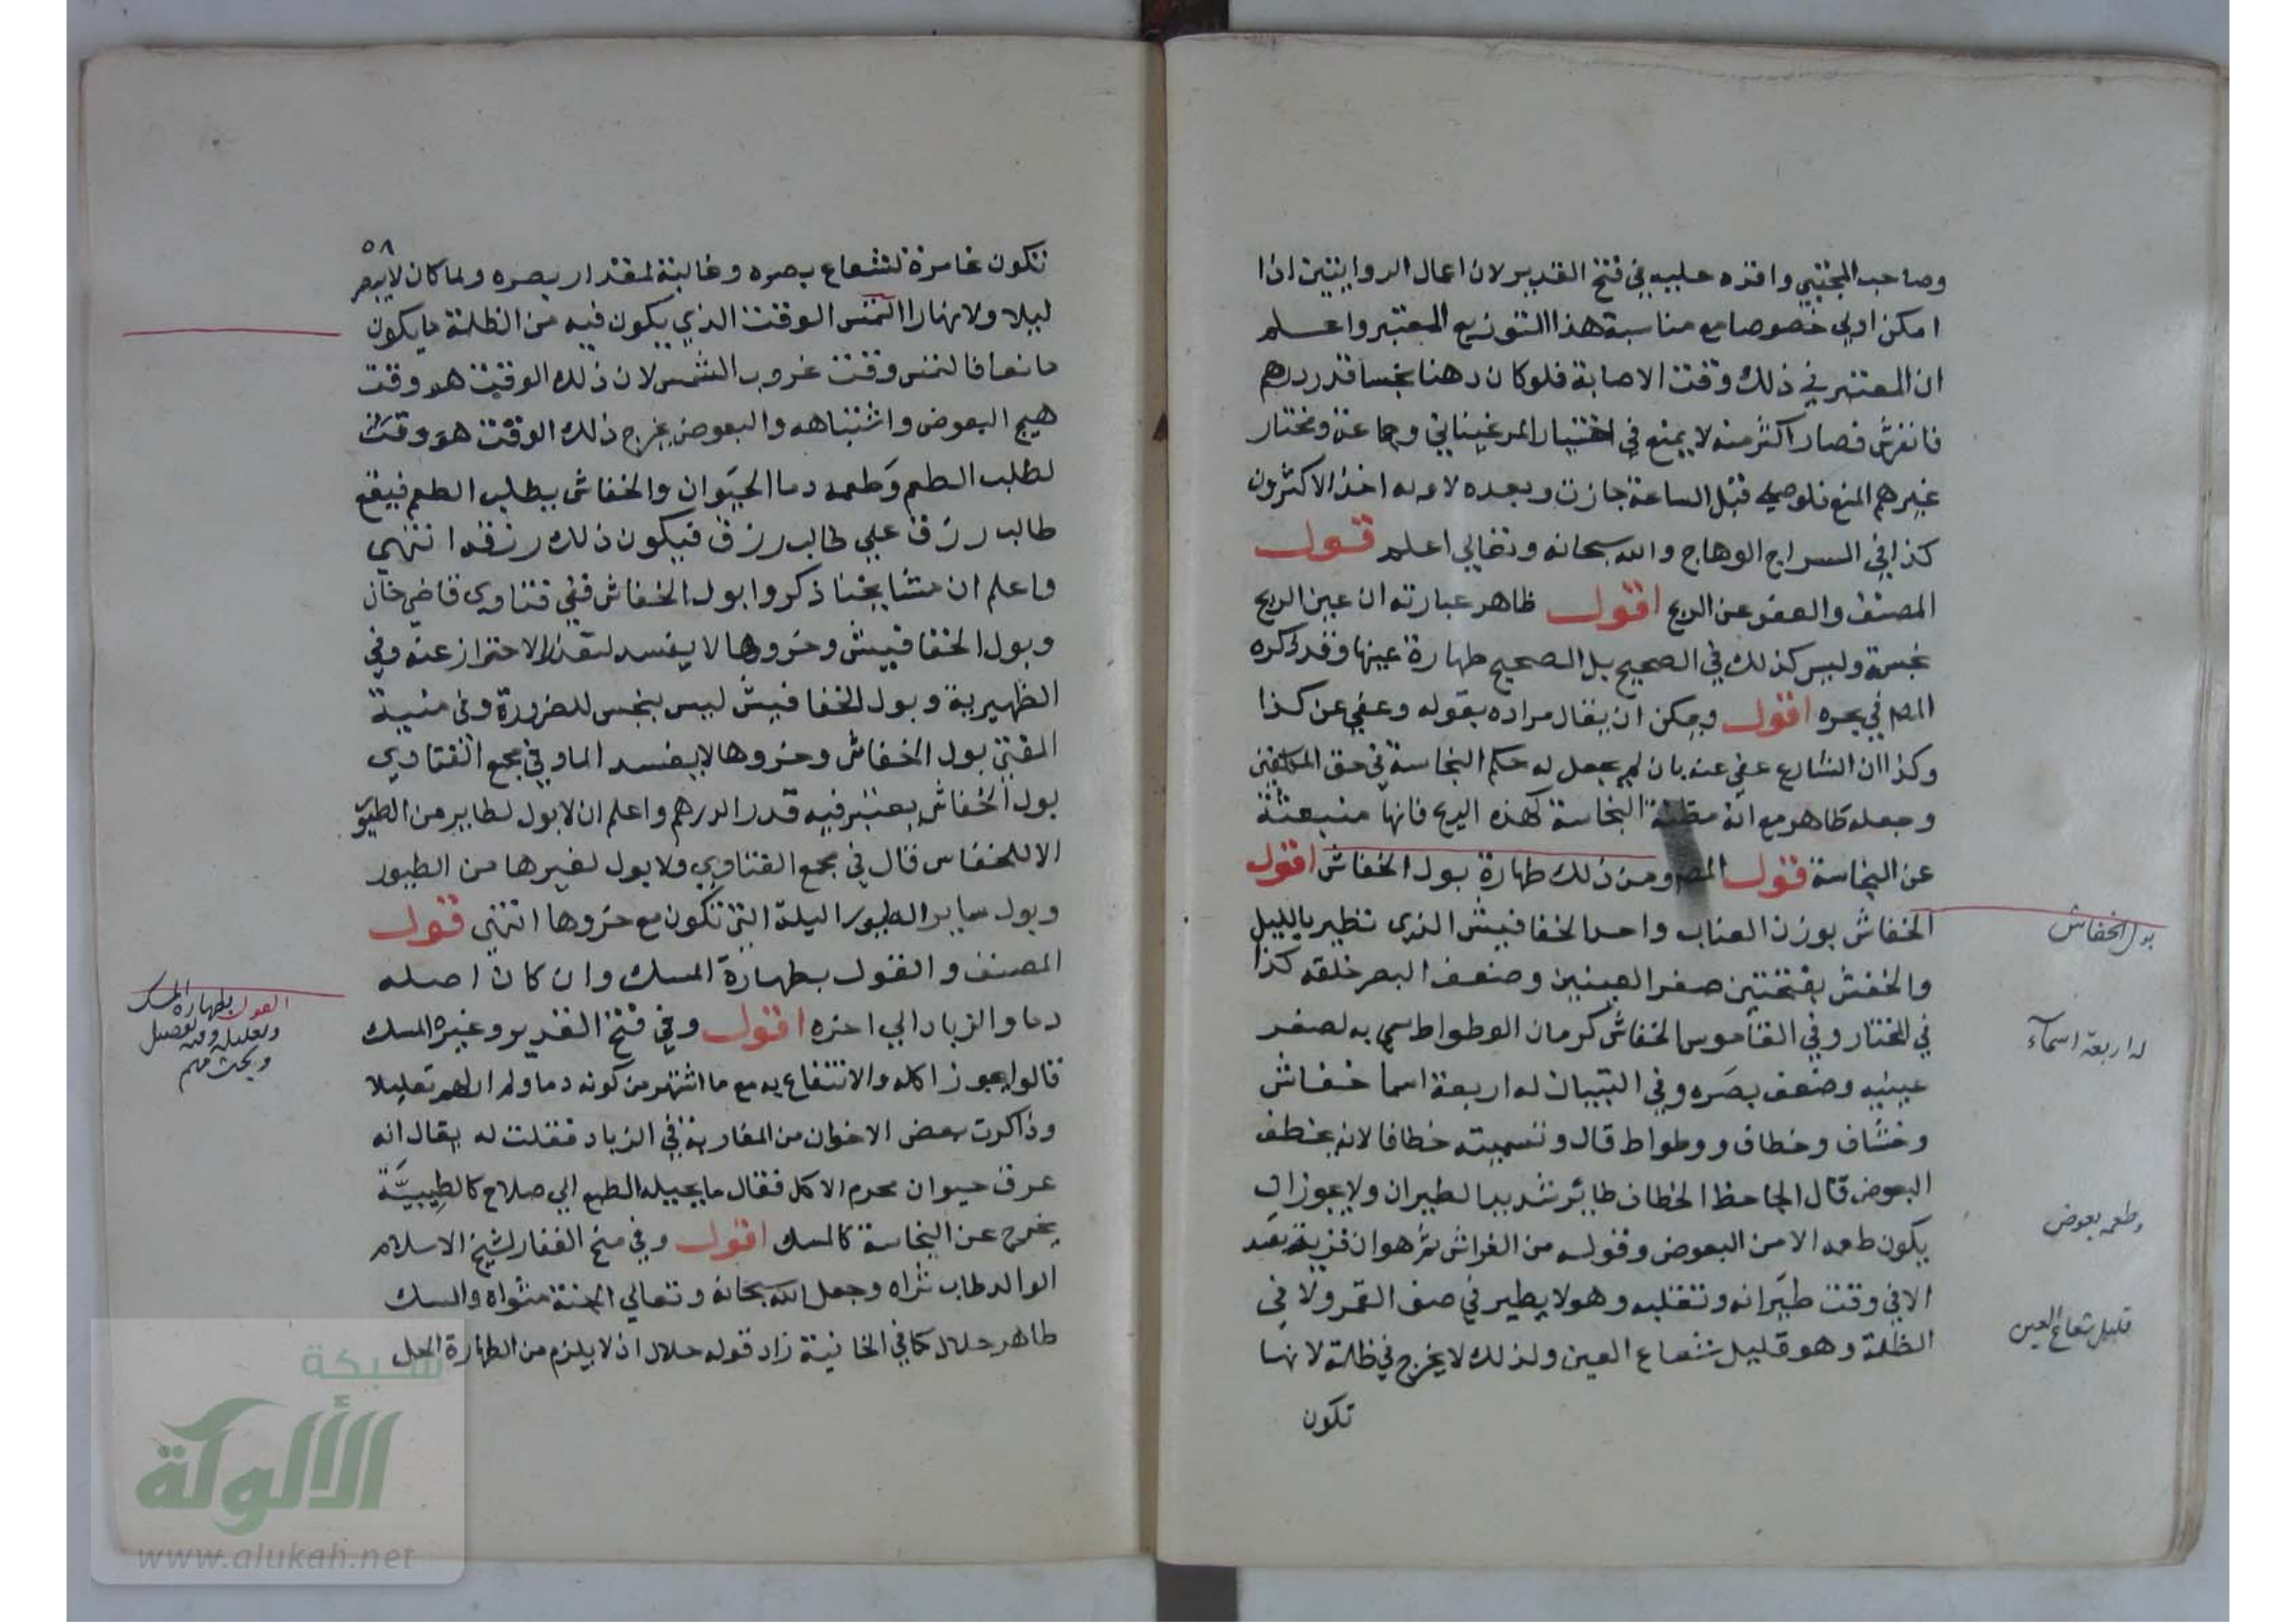 وصاحب المجتبي واقره عليه في فتح القدير لان اعمال الروايتين اذا
امكن اولي خصوصا مع مناسبة هذا التوزيع المعتبر واعلم
ان المعتبر في ذلك وقت الاصابة فلو كان دهنا نجسا قدر درهم
فانفرش فصار اكثر منه لا يمنع في اختيار المرغيناني وجماعة ومختار
غيرهم المنع فلو صلي قبل الساعة جازت وبعده لا وبه اخذ الاكثرون
كذا في السراج الوهاج والله سبحانه وتعالي اعلم قول
المصنف والعفو عن الريح اقول ظاهر عبارته ان عين الريح
نجسة وليس كذلك في الصحيح بل الصحيح طهارة عينها وقد ذكره
المص في بحره اقول ويمكن ان يقال مراده بقوله وعفي عن كذا
وكذا ان الشارع عفي عنه بان لم يجعل له حكم النجاسة في حق المكلفين
وجعله طاهر مع انه مظنة النجاسة كهذه الريح فانها منبعثة
عن النجاسة قول المص ومن ذلك طهارة بول الخفاش اقول
الخفاش بوزن العناب واحد الخفافيش الذي تطير بالليل
والخفش بفتحتين صغر العينين وضعف البصر خلقه كذا
في المختار وفي القاموس الخفاش كرمان الوطواط سمي به لصغر
عينيه وضعف بصره وفي التبيان له اربعة اسما خفاش
وخشاف وخطاف ووطواط قال وتسميته خطافا لانه يخطف
البعوض قال الجاحظ الخطاف طائر شديد الطيران ولا يجوز ان
يكون طعمه الا من البعوض وقوله من الفراش ثم هو ان
الا في وقت طيرانه وتقلبه وهو لا يطير في ضوء القمر ولا في
الظلمة وهو قليل شعاع العين ولذلك لا يخرج في ظلمة لانها
تكون
بول الخفاش
له اربعة اسماء
وطعمه بعوض
قليل شعاع العين
٥٨
تكون غامرة لشعاع بصره وغالبة لمقدار بصره ولما كان لا يبصر
ليلا ولا نهارا التمس الوقت الذي يكون فيه من الظلمة ما يكون
مانعا فالتمس وقت غروب الشمس لان ذلك الوقت هو وقت
هيج البعوض وانتباهه والبعوض يخرج ذلك الوقت هو وقت
لطلب الطعم وطعمه دما الحيوان والخفاش يطلب الطعم فيقع
طالب رزق علي طالب رزق فيكون ذلك رزقه انتهي
واعلم ان مشايخنا ذكروا بول الخفاش ففي فتاوي قاضي خان
وبول الخفافيش وخروها لا يفسد لتعذر الاحتراز عنه وفي
الظهيرية وبول الخفافيش ليس بنجس للضرورة وفي منية
المفتي بول الخفاش وخروها لا يفسد الما وفي مجمع الفتاوي
بول الخفاش يعتبر فيه قدر الدرهم واعلم ان لا بول لطاير من الطيور
الا للخفاس قال في مجمع الفتاوي ولا بول لغيرها من الطيور
وبول ساير الطيور البلة التي تكون مع خروها انتهي قول
المصنف والقول بطهارة المسك وان كان اصله
دما والزباد الي اخره اقول وفي فتح القدير وغيره المسك
قالوا يجوز اكله والانتفاع به مع ما اشتهر من كونه دما ولم ار لهم تعليلا
وذاكرت بعض الاخوان من المغاربة في الزباد فقلت له يقال انه
عرق حيوان محرم الاكل فقال ما يحيله الطبع الي صلاح كالطيبية
يخرج عن النجاسة كالمسك اقول وفي منح الغفار لشيخ الاسلام
الوالد طاب ثراه وجعل الله سبحانه وتعالي الجنة مثواه والمسك
طاهر حلال كما في الخانية زاد قوله حلال اذ لا يلزم من الطهارة الحل
القول بطهارة المسك
وتعليله وفيه تفصيل
وبحث مهم
شبكة
الألوكة
www.alukah.net